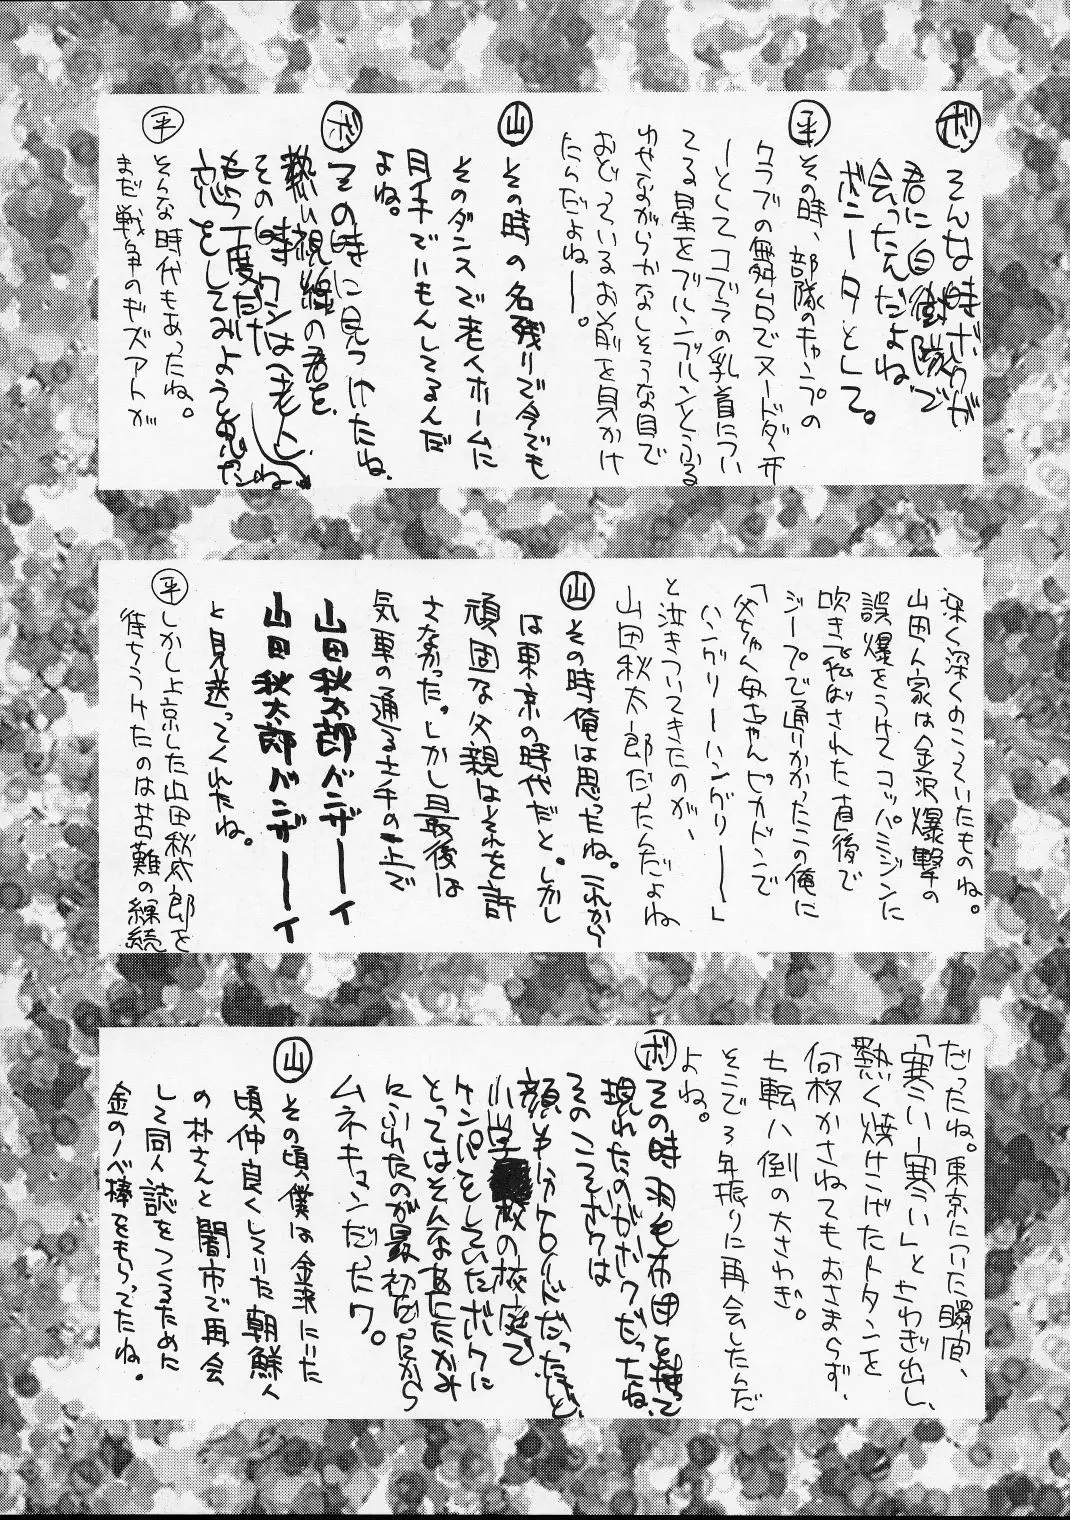 ボ そんな時ボクが
君に白樹隊で
会ったんだよね
ボニータとして。
平 その時、部隊のキャンプの
クラブの舞台でヌードダサ
ーとしてコブラの乳首につい
てる星をブルンブルンとふる
わせながらかなしそうな目で
おどっているお前を見かけ
たんだよねー。
山 その時の名残りで今でも
そのダンスで老人ホームに
目手でいもんしてるんだ
よね。
ボ その時に見つけたね、
熱い視線の君を、
その時ワンは老い
もう一度だけ ね
恋をしてみようと思った
平 そんな時代もあったね。
まだ戦争のキズアトが
深く深くのこっていたものね。
山田ん家は金沢爆撃の
誤爆をうけてコッパミジンに
吹きとばされた直後で
ジープで通りかかったこの俺に
「父ちゃん母ちゃんピカドンで
ハングリーハングリーー」
と泣きついてきたのが、
山田秋太郎だったんだよね
山 その時俺は思ったね。これから
は東京の時代だと。しかし
頑固な父親はそれを許
さなかった。しかし最後は
気車の通る土手の上で
山田秋太郎バンザーーイ
山田秋太郎バンザーーイ
と見送ってくれたね。
平 しかし上京した山田秋太郎を
待ちうけたのは苦難の継続
だったね。東京についた瞬間、
「寒いー寒い」とさわぎ出し、
熱く焼けこげたトタンを
何枚かさねてもおさまらず、
七転八倒の大さわぎ。
そこで3年振りに再会したんだ
よね。
ボ その時羽毛布団を持って
現れたのがボクだったね、
そのころボクは
顔もハクロイドだったけど、
小学校の校庭で
ケンパをしていたボクに
とってはそんなあたたかみ
にふれたのが最初だったから
ムネキュンだったワ。
山 その頃、僕は金沢にいた
頃仲良くしていた朝鮮人
の朴さんと闇市で再会
して同人誌をつくるために
金のノベ棒をもらってたね。